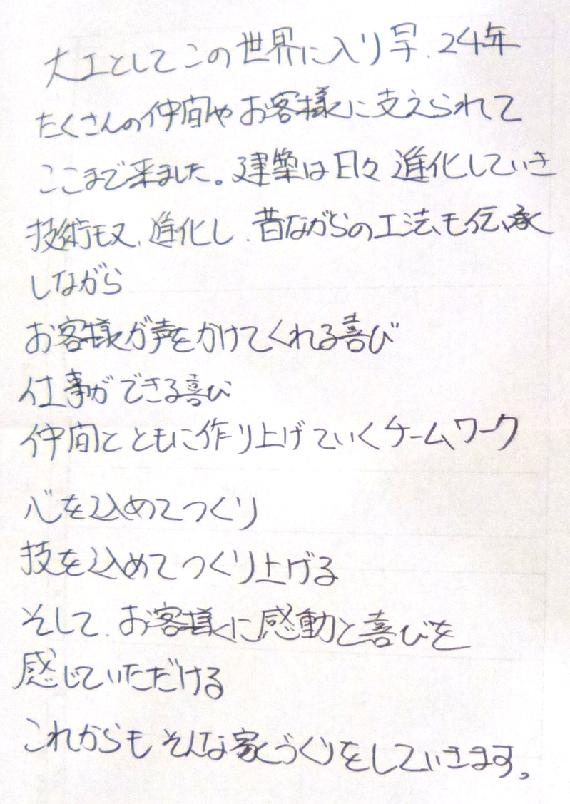 大工としてこの世界に入り早、24年
たくさんの仲間やお客様に支えられて
ここまで来ました。建築は日々進化していき
技術も又、進化し、昔ながらの工法も伝承
しながら
お客様が声をかけてくれる喜び
仕事ができる喜び
仲間とともに作り上げていくチームワーク
心を込めてつくり
技を込めてつくり上げる
そして、お客様に感動と喜びを
感じていただける
これからもそんな家づくりをしていきます。